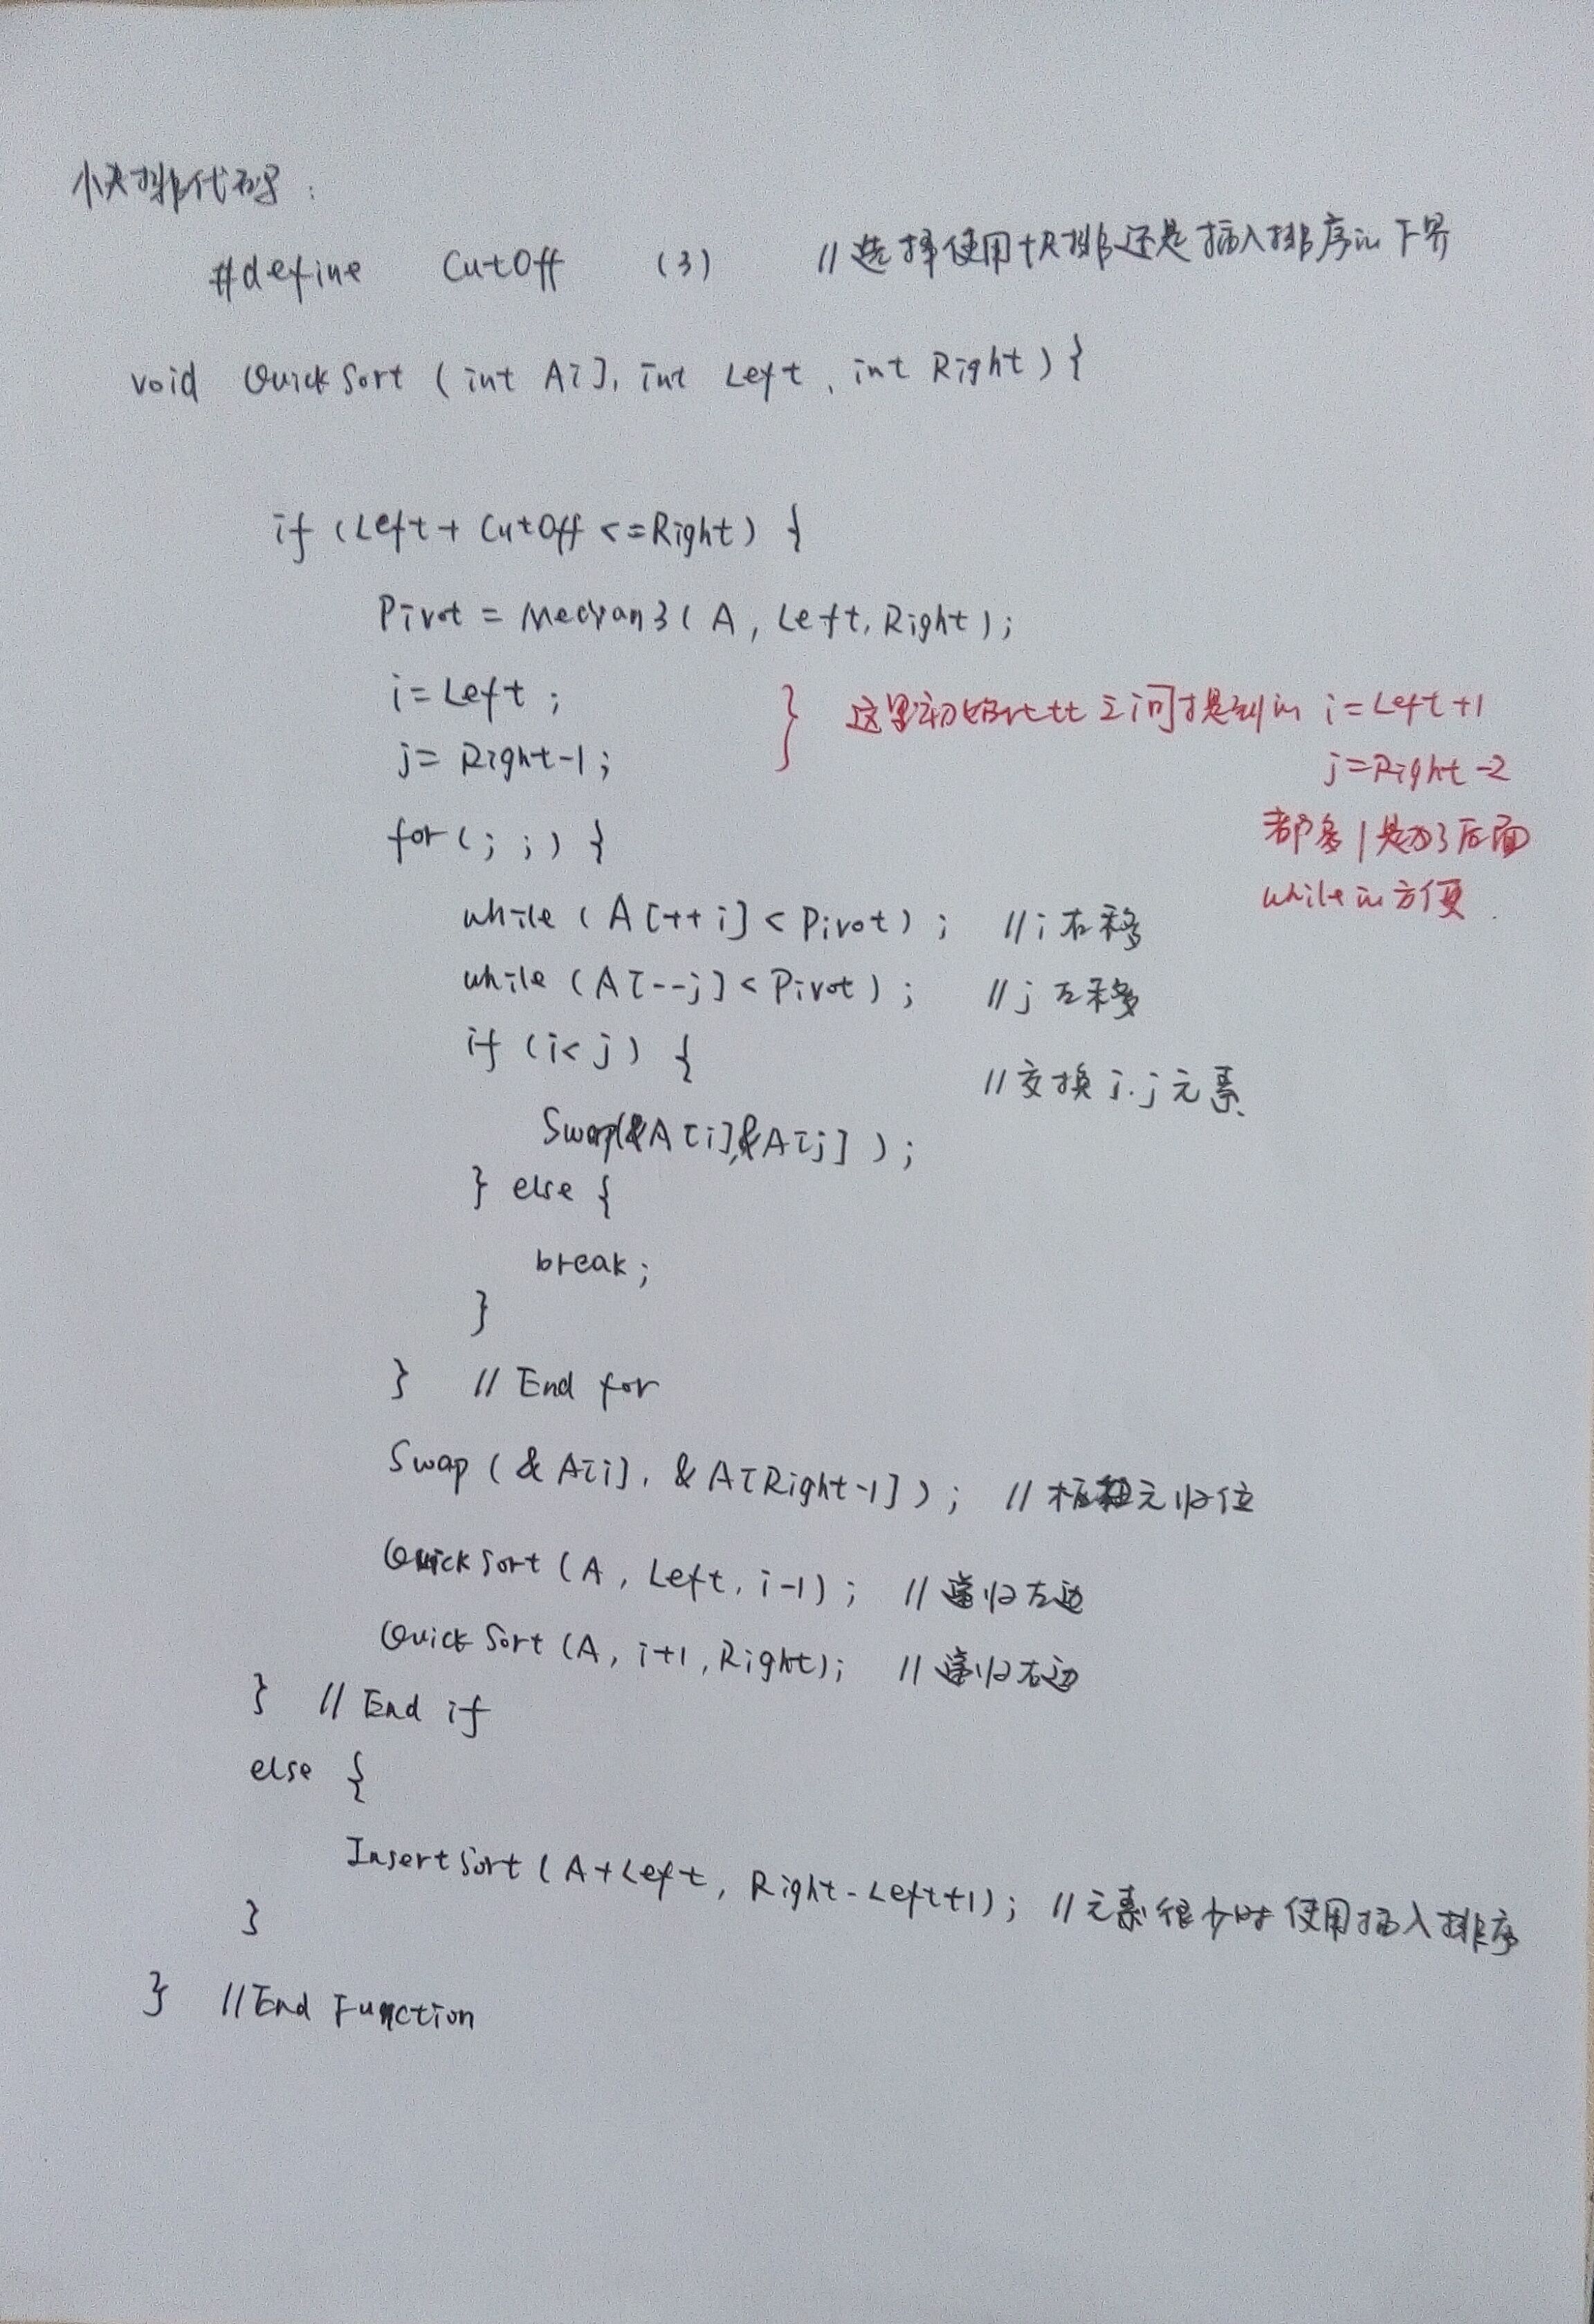 快排代码:
#define CutOff (3) //选择使用快排还是插入排序的下界
void QuickSort (int A[], int Left, int Right) {
if (Left + CutOff <= Right) {
Pivot = Median3 ( A, Left, Right );
i = Left ;
j = Right-1 ;
} 这里初始化比之前提到的 i = Left +1
j = Right -2
都多1是为了后面
while的方便.
for ( ; ; ) {
while ( A[++i] < Pivot ) ; //i右移
while ( A[--j] < Pivot ) ; //j左移
if ( i< j ) { //交换i.j元素
Swap(&A[i],&A[j] ) ;
} else {
break ;
}
} // End for
Swap ( & A[i], & A[Right-1] ) ; //枢纽元归位
QuickSort ( A, Left, i-1 ) ; //递归左边
QuickSort ( A, i+1, Right ) ; //递归右边
} // End if
else {
InsertSort ( A+Left, Right-Left+1 ) ; //元素很少时使用插入排序
}
} //End Function